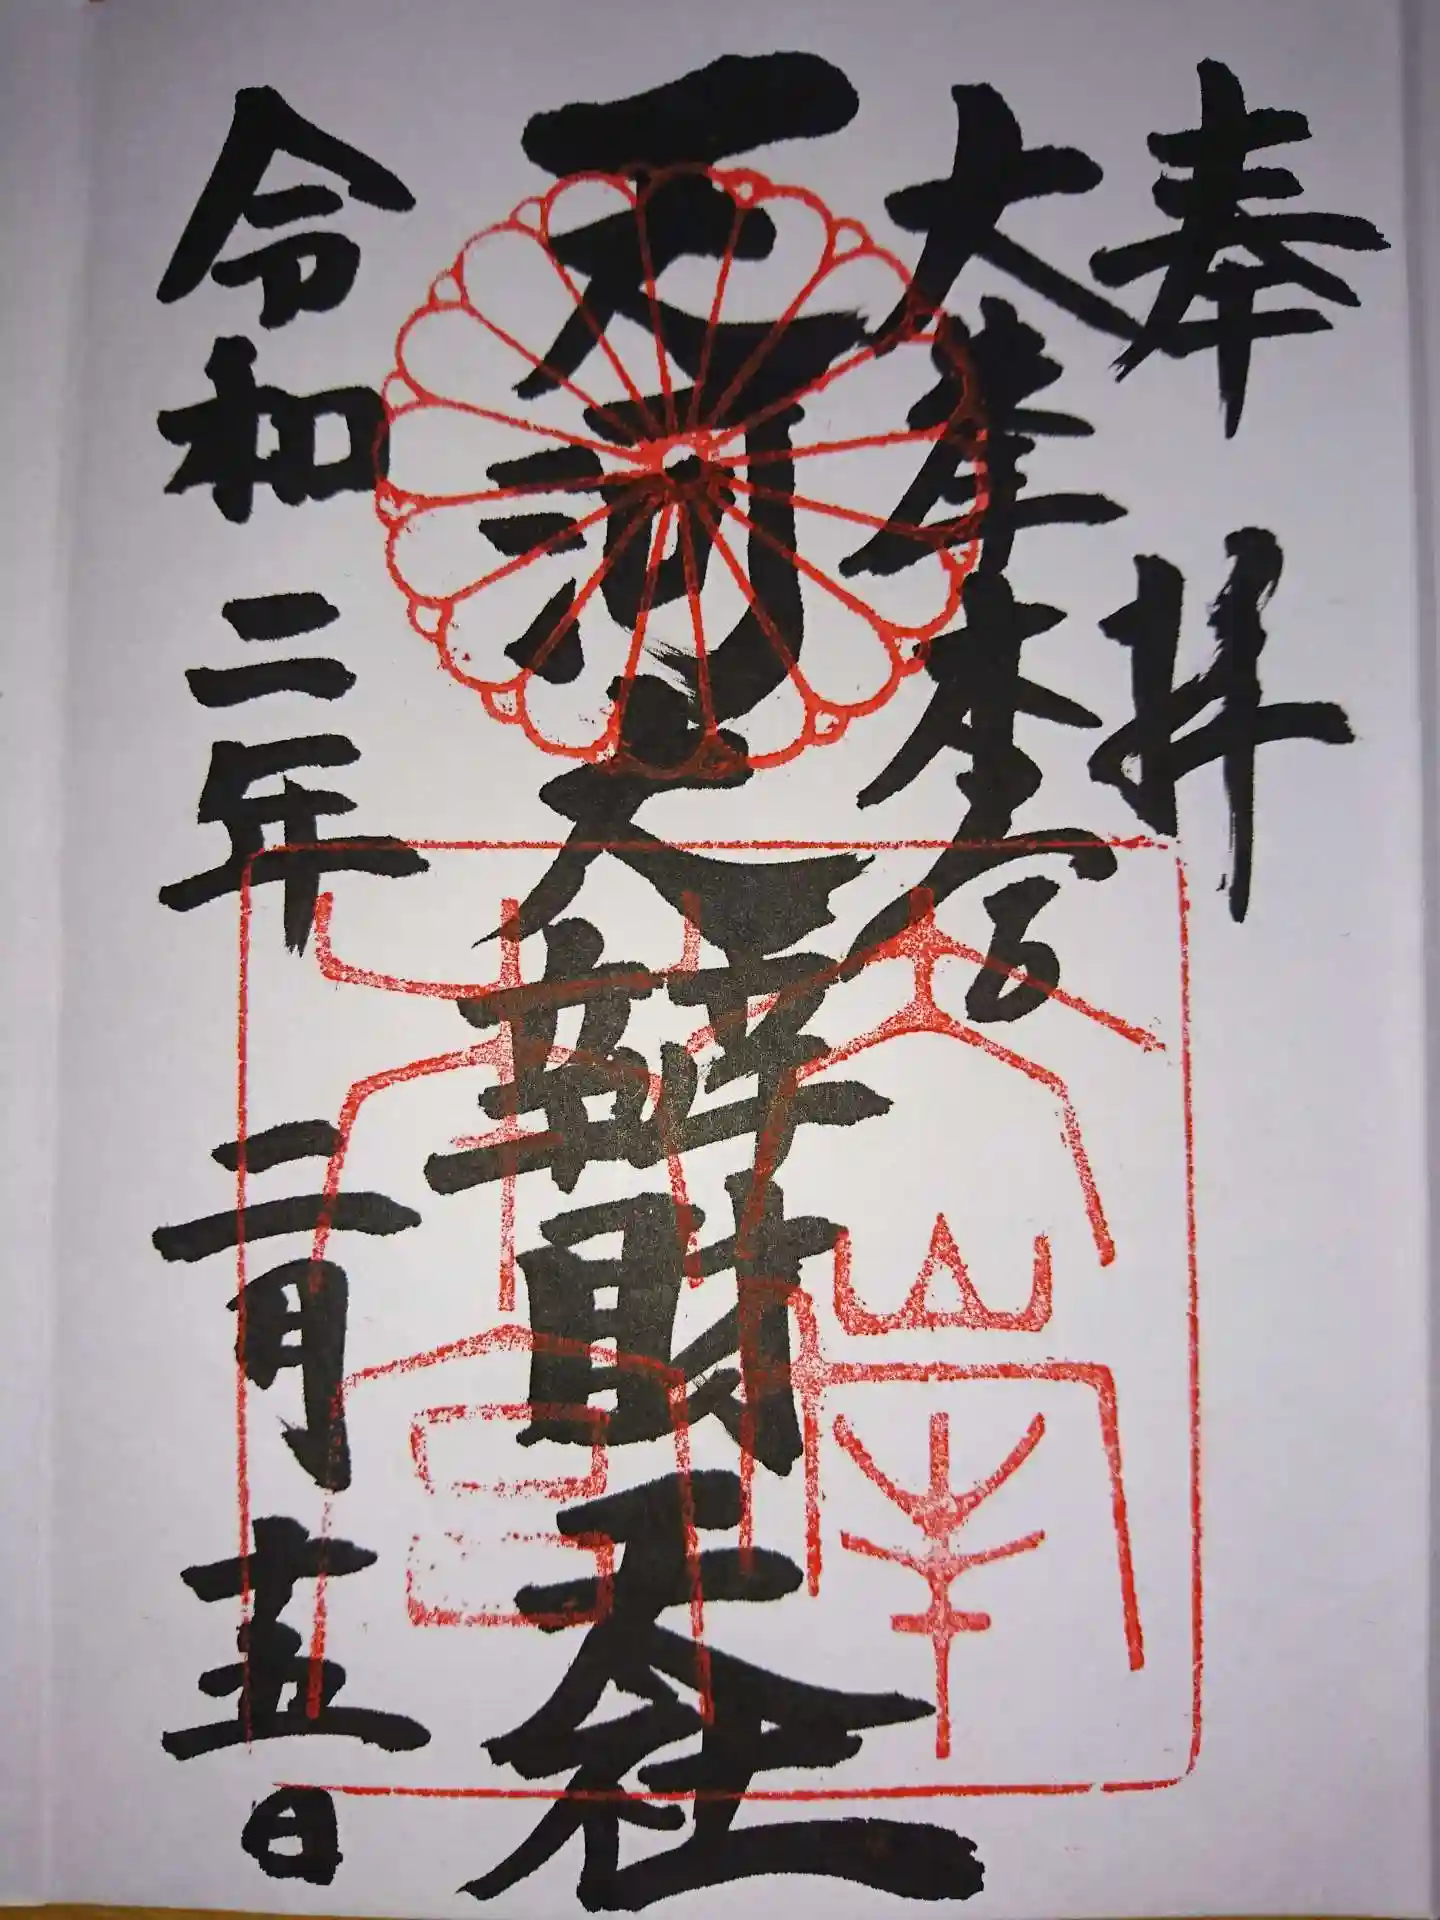 奉拝
大峯本宮
天河大辨財天社
令和二年二月十五日